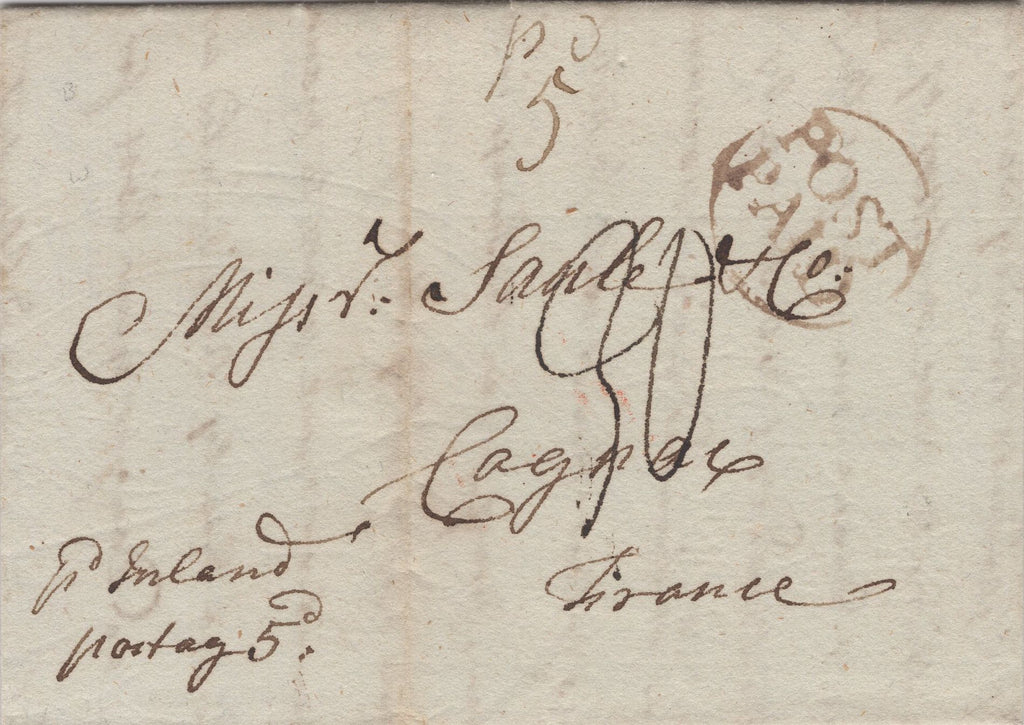 pd
5
POST
PAID
Missrs. Saule & Co:
Cognac
France
pd Inland
postag 5d.